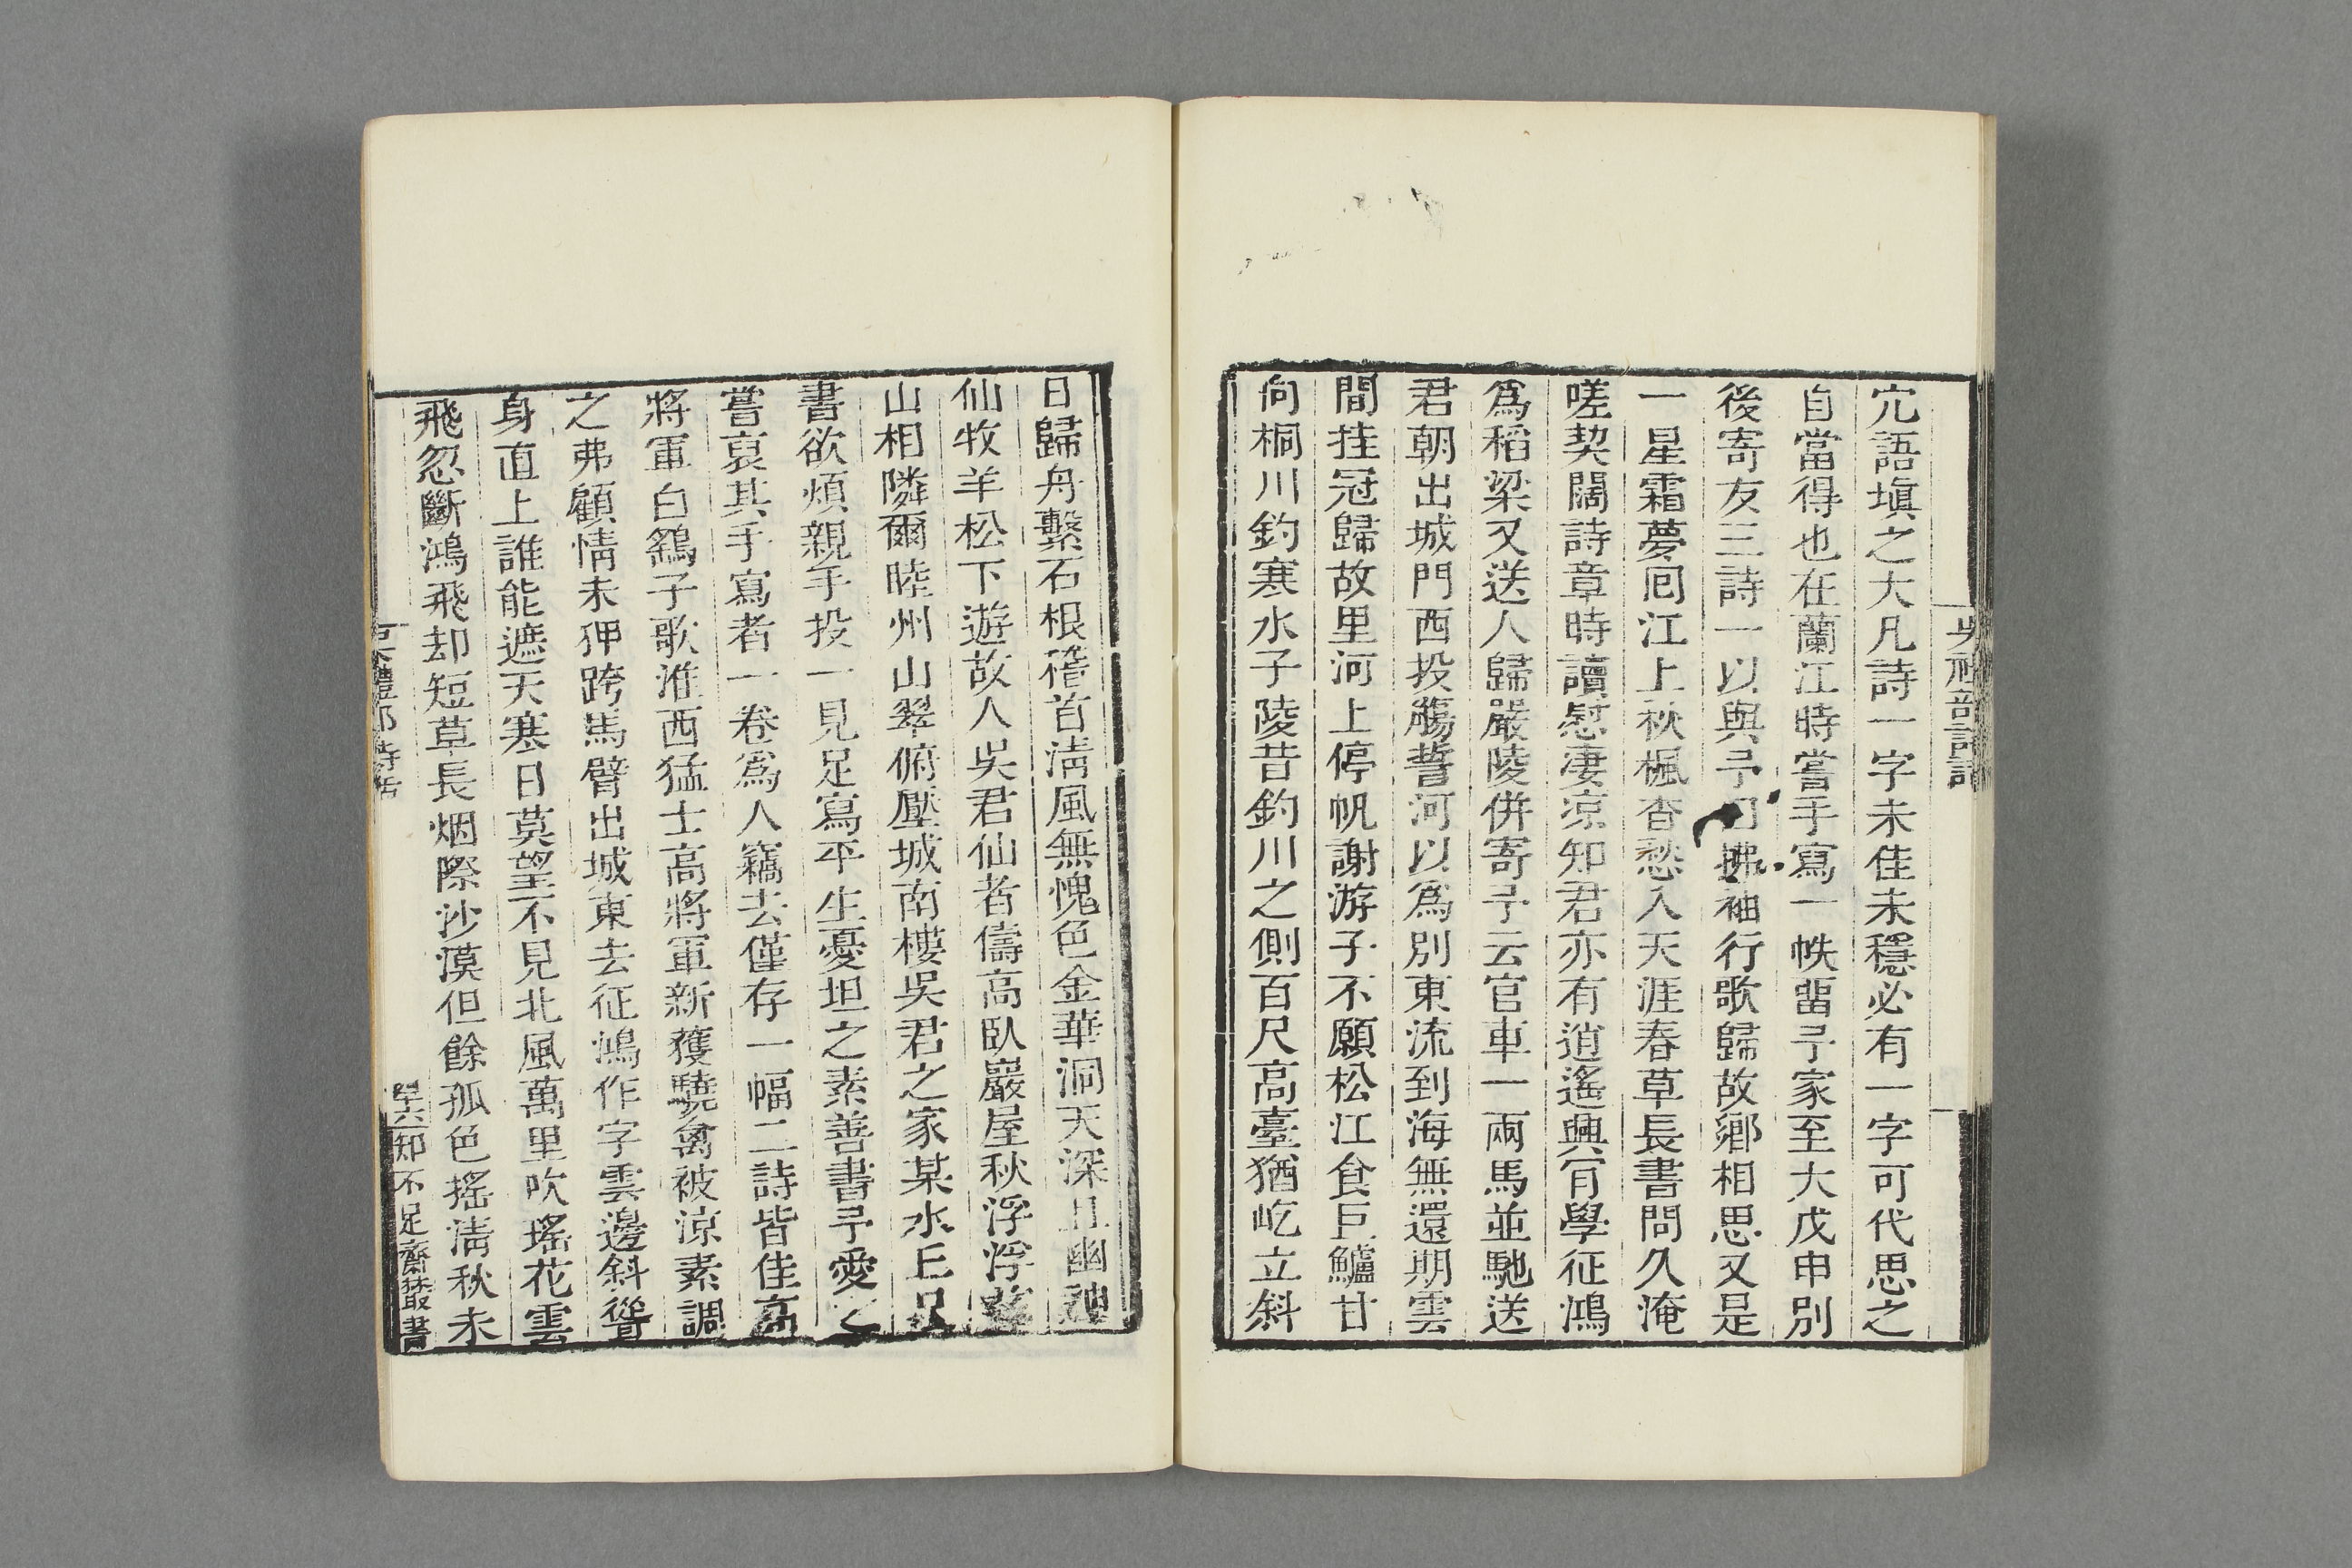 宂語塡之大凡詩一字未佳未穩必有一字可代思之
自當得也在蘭江時嘗手寫一帙畱予家至大戊申別
後寄友三詩一以與予曰拂袖行歌歸故鄉相思又是
一星霜夢囘江上秋楓杳愁入天涯春草長書問久淹
嗟契闊詩章時讀慰凄凉知君亦有逍遙興肎學征鴻
爲稻梁又送人歸嚴陵併寄予云官車一兩馬並馳送
君朝出城門西投觴誓河以爲別東流到海無還期雲
間挂冠歸故里河上停帆謝游子不願松江食巨鱸甘
向桐川釣寒水子陵昔釣川之側百尺高臺猶屹立斜
日歸舟繫石根稽首淸風無愧色金華洞天深且幽神
仙牧羊松下遊故人吳君仙者儔高臥巖屋秋浮浮
山相隣爾睦州山翠俯壓城南樓吳君之家某水上尺
書欲煩親手投一見足寫平生憂坦之素善書予愛之
嘗裒其手寫者一卷爲人竊去僅存一幅二詩皆佳高
將軍白鷂子歌淮西猛士高將軍新獲驍禽被涼素調
之弗顧情未狎跨馬臂出城東去征鴻作字雲邊斜聳
身直上誰能遮天寒日莫望不見北風萬里吹瑤花雲
飛忽斷鴻飛却短草長烟際沙漠但餘孤色搖淸秋未
吳禮部詩話
知不足齋叢書